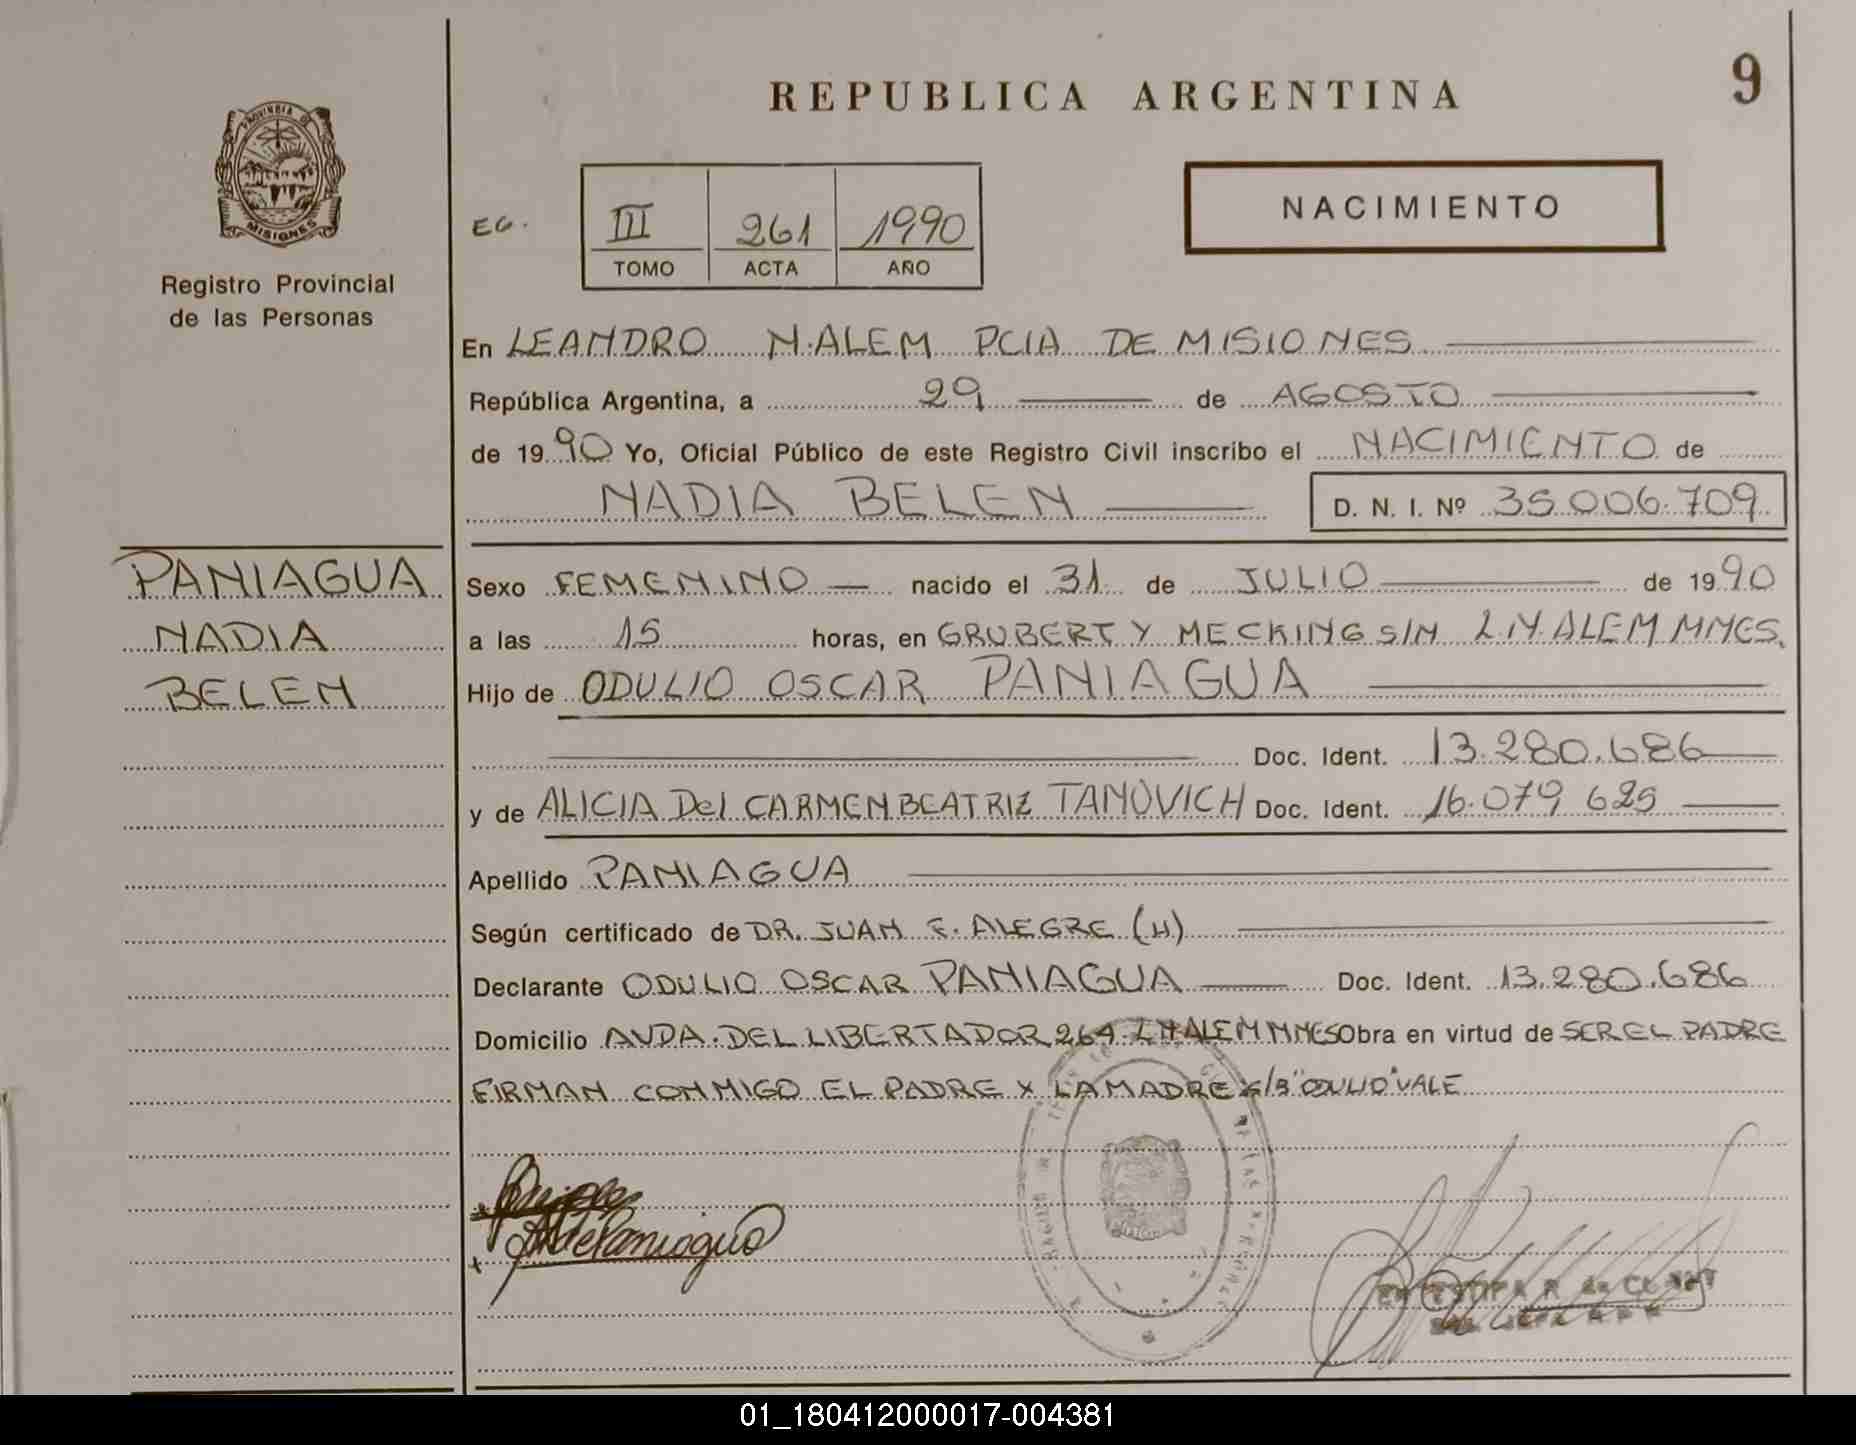 REPUBLICA ARGENTINA
9
PROVINCIA DE
MISIONES
Registro Provincial
de las Personas
EG.
III 261 1990
TOMO ACTA AÑO
NACIMIENTO
En LEANDRO N. ALEM PCIA DE MISIONES
República Argentina, a 29 de AGOSTO
de 1990 Yo, Oficial Público de este Registro Civil inscribo el NACIMIENTO de
NADIA BELEN D. N. I. Nº 35.006.709
PANIAGUA
NADIA
BELEN
Sexo FEMENINO nacido el 31 de JULIO de 1990
a las 15 horas, en GRUBERT Y MECKING S/N L.N. ALEM MNES.
Hijo de ODULIO OSCAR PANIAGUA
Doc. Ident. 13.280.686
y de ALICIA Del CARMEN BEATRIZ TANOVICH Doc. Ident. 16.079 625
Apellido PANIAGUA
Según certificado de DR. JUAN F. ALEGRE (H)
Declarante ODULIO OSCAR PANIAGUA Doc. Ident. 13.280.686
Domicilio AVDA. DEL LIBERTADOR 264 L N ALEM MNES Obra en virtud de SER EL PADRE
FIRMAN CONMIGO EL PADRE X LA MADRE S/B "ODULIO" VALE
01_180412000017-004381